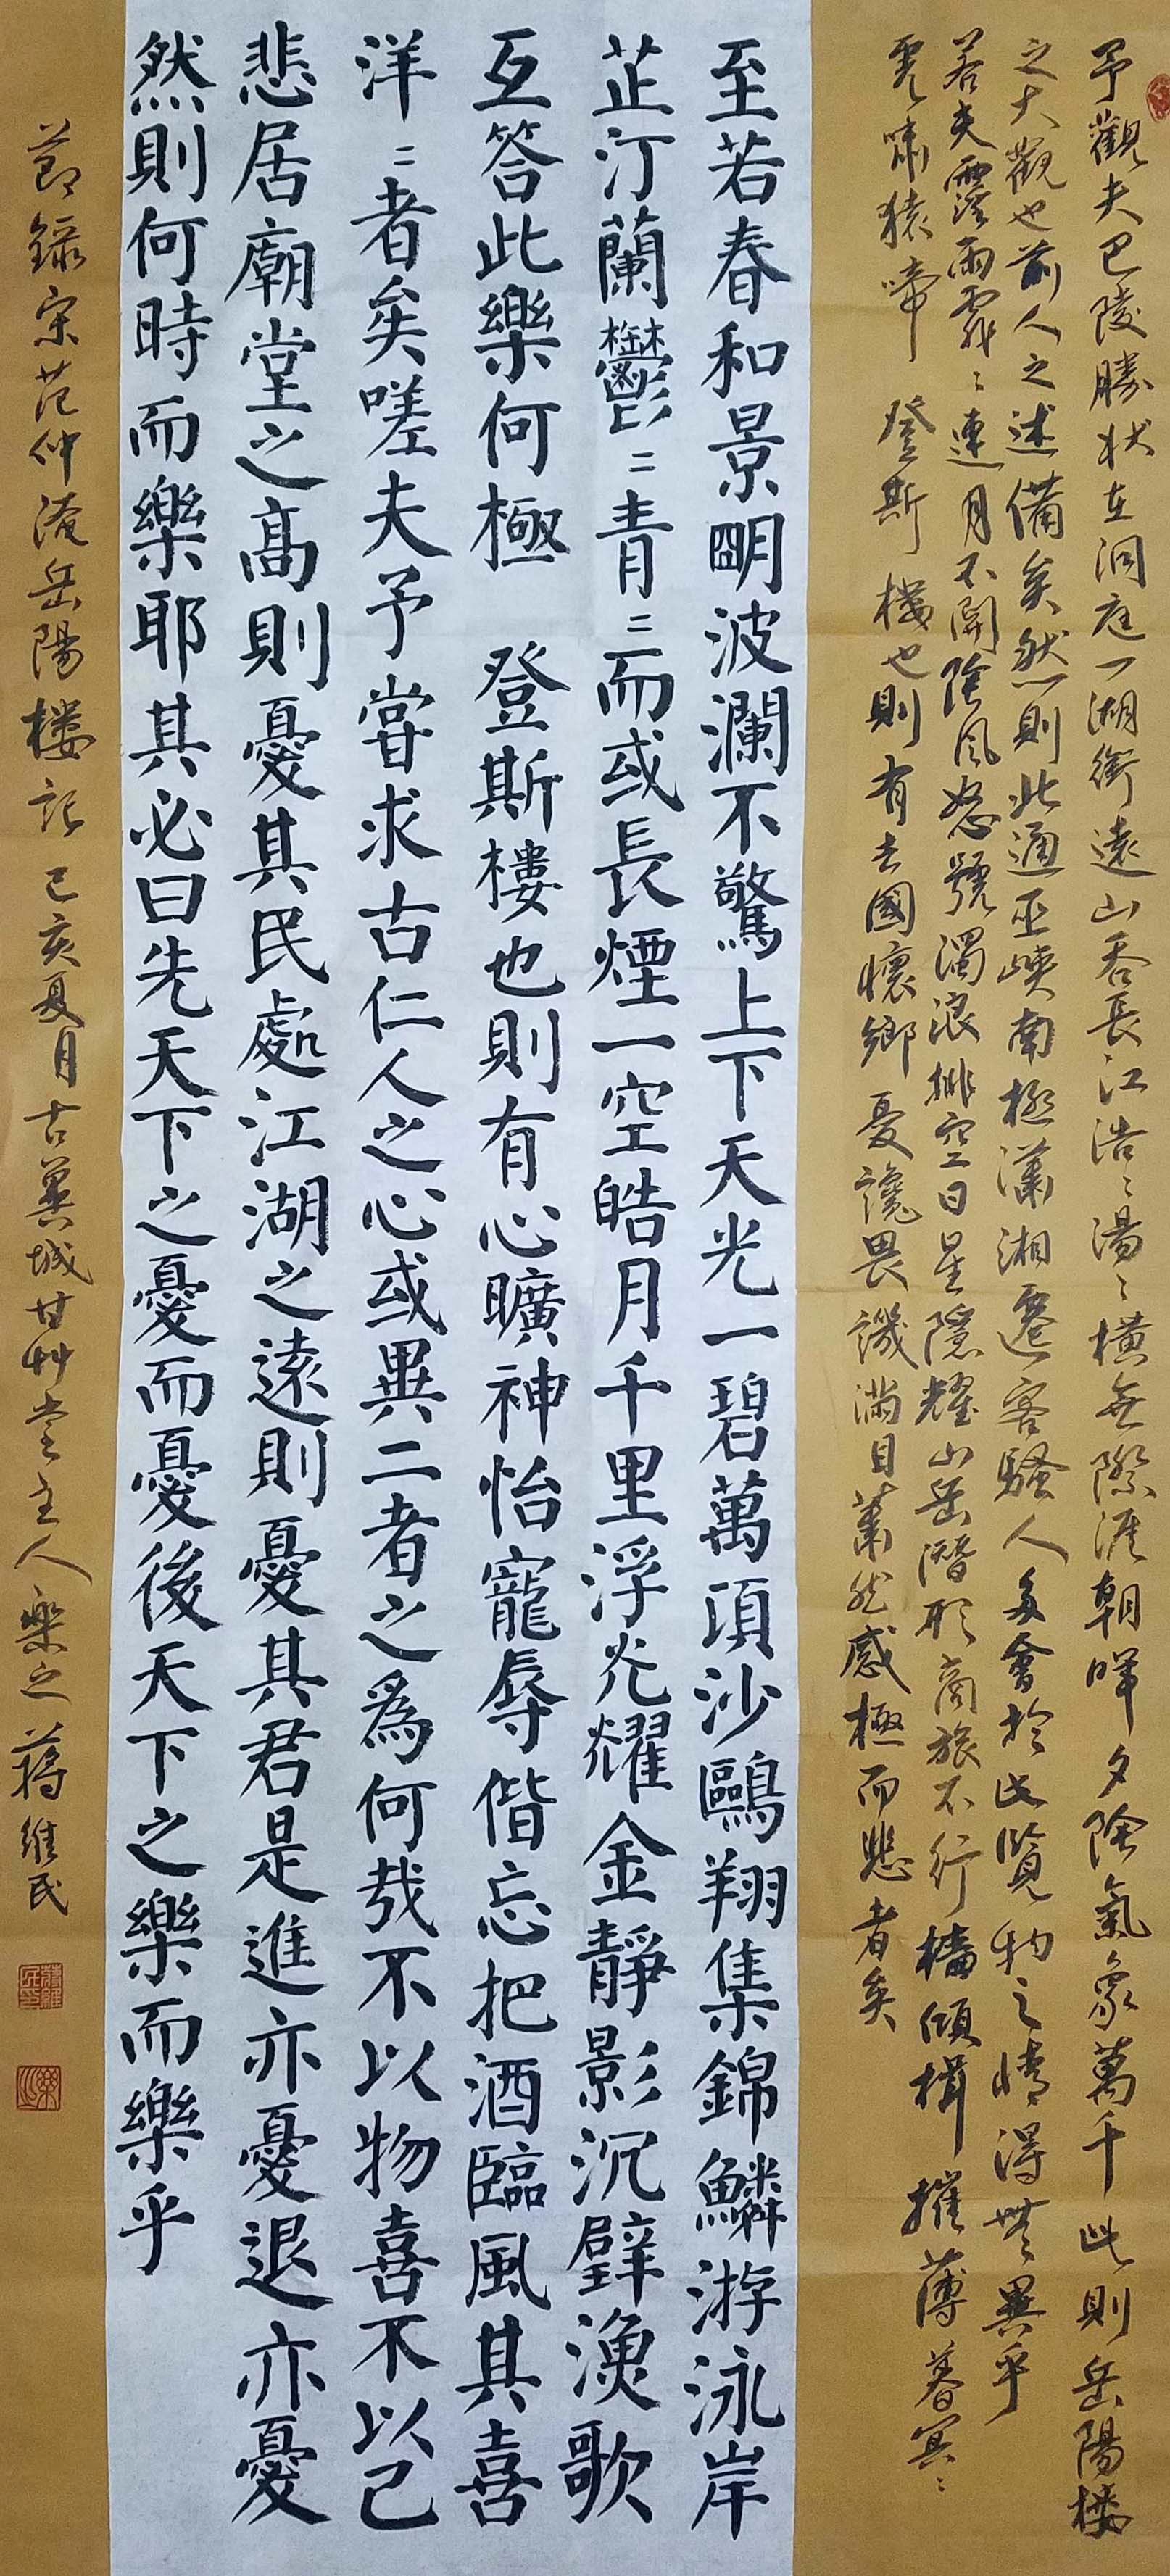 予觀夫巴陵勝狀在洞庭一湖銜遠山吞長江浩〻湯〻橫無際涯朝暉夕陰氣象萬千此則岳陽樓
之大觀也前人之述備矣然則北通巫峽南極瀟湘遷客騷人多會於此覽物之情得無異乎
若夫霪雨霏〻連月不開陰風怒號濁浪排空日星隱耀山岳潛形商旅不行檣傾楫摧薄暮冥〻
虎嘯猿啼 登斯樓也則有去國懷鄉憂讒畏譏滿目蕭然感極而悲者矣
至若春和景明波瀾不驚上下天光一碧萬頃沙鷗翔集錦鱗游泳岸
芷汀蘭鬱〻青〻而或長煙一空皓月千里浮光耀金靜影沉璧漁歌
互答此樂何極 登斯樓也則有心曠神怡寵辱偕忘把酒臨風其喜
洋〻者矣嗟夫予嘗求古仁人之心或異二者之為何哉不以物喜不以己
悲居廟堂之高則憂其民處江湖之遠則憂其君是進亦憂退亦憂
然則何時而樂耶其必曰先天下之憂而憂後天下之樂而樂乎
節錄宋范仲淹岳陽樓記己亥夏月古冀城甘艸堂主人樂之蔣維民